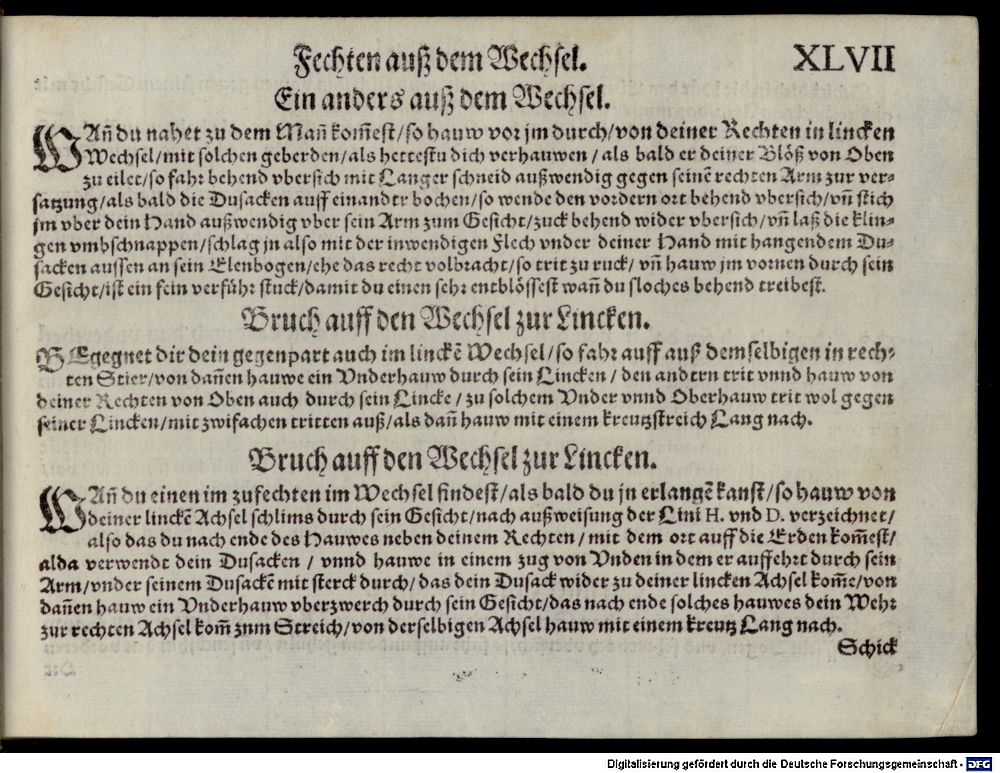 Fechten auß dem Wechsel.
XLVII
Ein anders auß dem Wechsel.
WAñ du nahet zu dem Mañ kom̃est/so hauw vor jm durch/von deiner Rechten in lincken
Wechsel/mit solchen geberden/als hettestu dich verhauwen/als bald er deiner Blöß von Oben
zu eilet/so fahr behend vbersich mit Langer schneid außwendig gegen seinẽ rechten Arm zur ver-
satzung/als bald die Dusacken auff einandtr bochen/so wende den vordern ort behend vbersich/vñ stich
jm vber dein Hand außwendig vber sein Arm zum Gesicht/zuck behend wider vbersich/vñ laß die klin-
gen vmbschnappen/schlag jn also mit der inwendigen Flech vnder deiner Hand mit hangendem Du-
sacken aussen an sein Elenbogen/ehe das recht volbracht/so trit zu ruck/vñ hauw jm vornen durch sein
Gesicht/ist ein fein verführ stuck/damit du einen sehr entblössest wañ du sloches behend treibest.
Bruch auff den Wechsel zur Lincken.
BEgegnet dir dein gegenpart auch im linckẽ Wechsel/so fahr auff auß demselbigen in rech-
ten Stier/von dañen hauwe ein Vnderhauw durch sein Lincken/den andtrn trit vnnd hauw von
deiner Rechten von Oben auch durch sein Lincke/zu solchem Vnder vnnd Oberhauw trit wol gegen
seiner Lincken/mit zwifachen tritten auß/als dañ hauw mit einem kreutzstreich Lang nach.
Bruch auff den Wechsel zur Lincken.
WAñ du einen im zufechten im Wechsel findest/als bald du jn erlangẽ kanst/so hauw von
deiner linckẽ Achsel schlims durch sein Gesicht/nach außweisung der Lini H. vnd D. verzeichnet/
also das du nach ende des Hauwes neben deinem Rechten/mit dem ort auff die Erden kom̃est/
alda verwendt dein Dusacken/vnnd hauwe in einem zug von Vnden in dem er auffehrt durch sein
Arm/vnder seinem Dusackẽ mit sterck durch/das dein Dusack wider zu deiner lincken Achsel kom̃e/von
dañen hauw ein Vnderhauw vberzwerch durch sein Gesicht/das nach ende solches hauwes dein Wehr
zur rechten Achsel kom̃ znm Streich/von derselbigen Achsel hauw mit einem kreutz Lang nach.
Schick
Digitalisierung gefördert durch die Deutsche Forschungsgemeinschaft - DFG